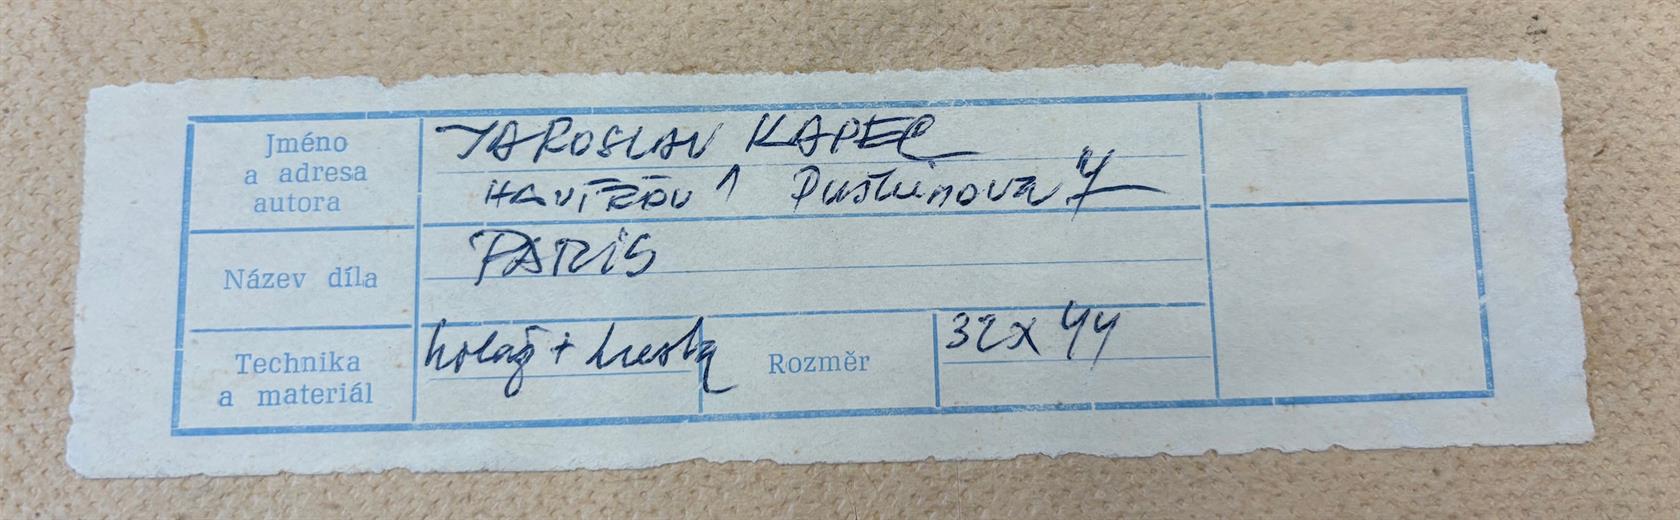 Jméno
a adresa
autora
JAROSLAV KAPEC
HAVÍŘOV 1 Puškinova 7
Název díla
PARIS
Technika
a materiál
koláž + kresba
Rozměr
32x44